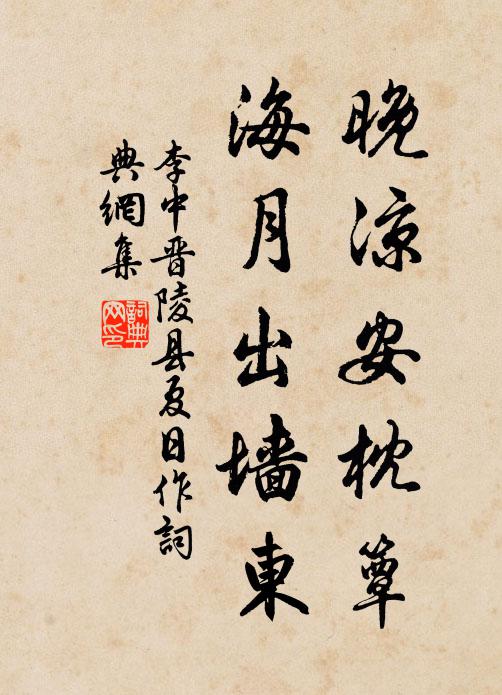 晚涼安枕簟
海月出墙東
李中晋陵县夏日作詞
典網集
詞典
网印